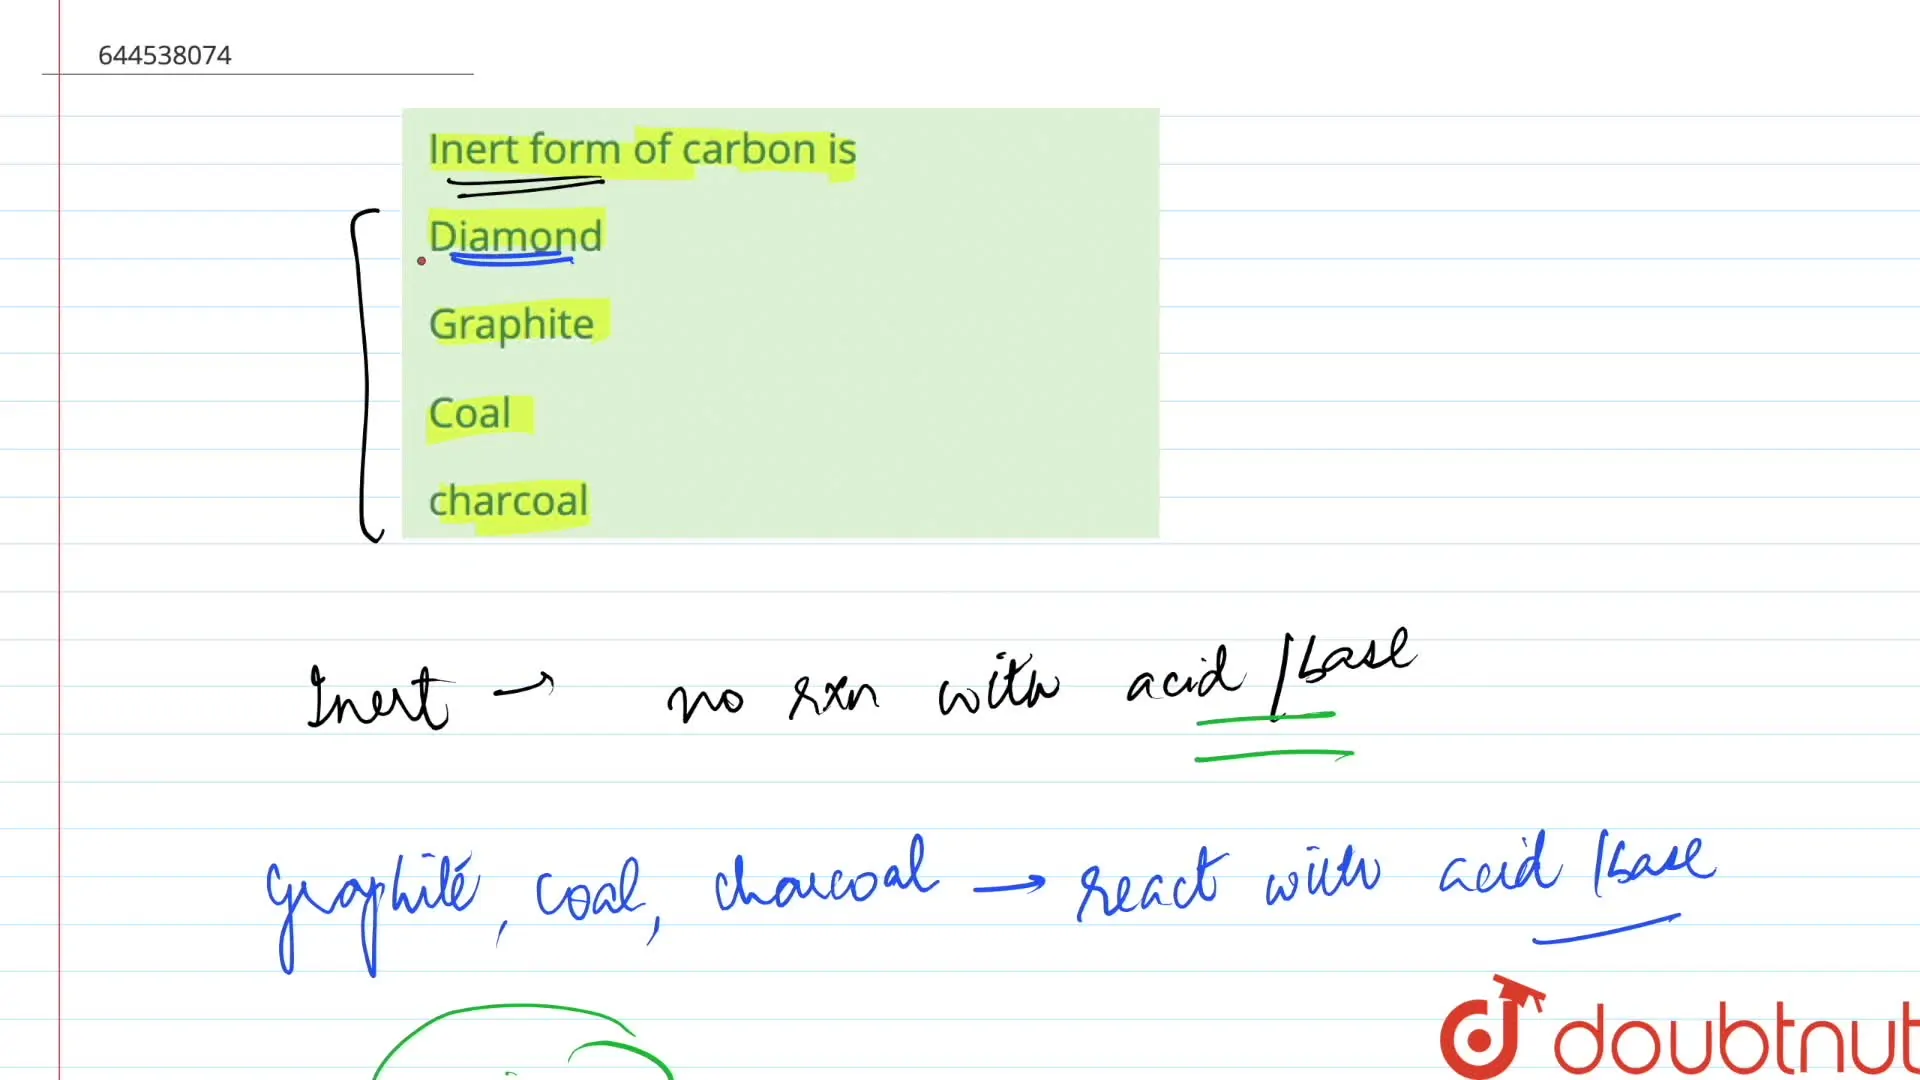 644538074
Inert form of carbon is
Diamond
Graphite
Coal
charcoal
Inert → no rxn with acid /base
graphite, coal, charcoal → react with acid /base
doubtnut